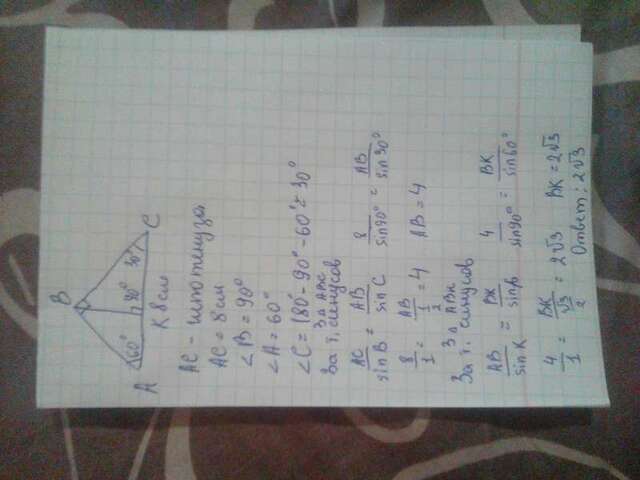 B
60° 90° 30°
A K 8 см C
AC - гипотенуза
AC = 8 см
∠B = 90°
∠A = 60°
∠C = 180° - 90° - 60° = 30°
З Δ ABC
За т. синусов
AC/sin B = AB/sin C 8/sin90° = AB/sin30°
8/1 = AB/(1/2) = 4 AB = 4
З Δ ABK
За т. синусов
AB/sin K = BK/sin A 4/sin90° = BK/sin60°
4/1 = BK/(√3/2) = 2√3 BK = 2√3
Ответ: 2√3